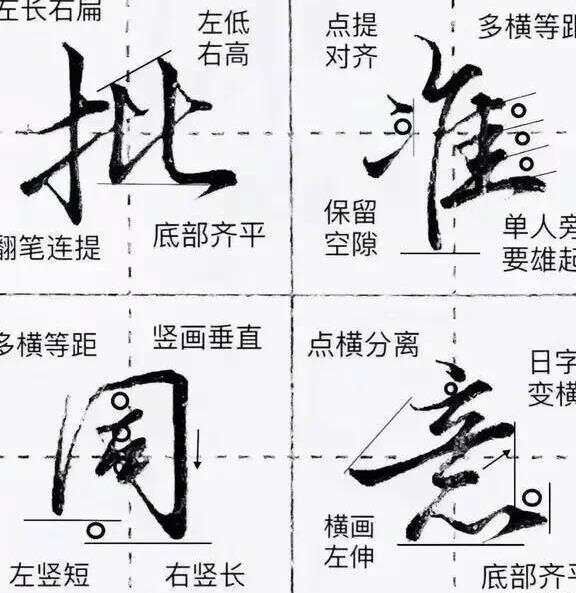 左长右扁
左低
右高
批
翻笔连提
底部齐平
点提
对齐
多横等距
准
保留
空隙
单人旁
要雄起
多横等距
竖画垂直
周
左竖短
右竖长
点横分离
日字
变横
意
横画
左伸
底部齐平